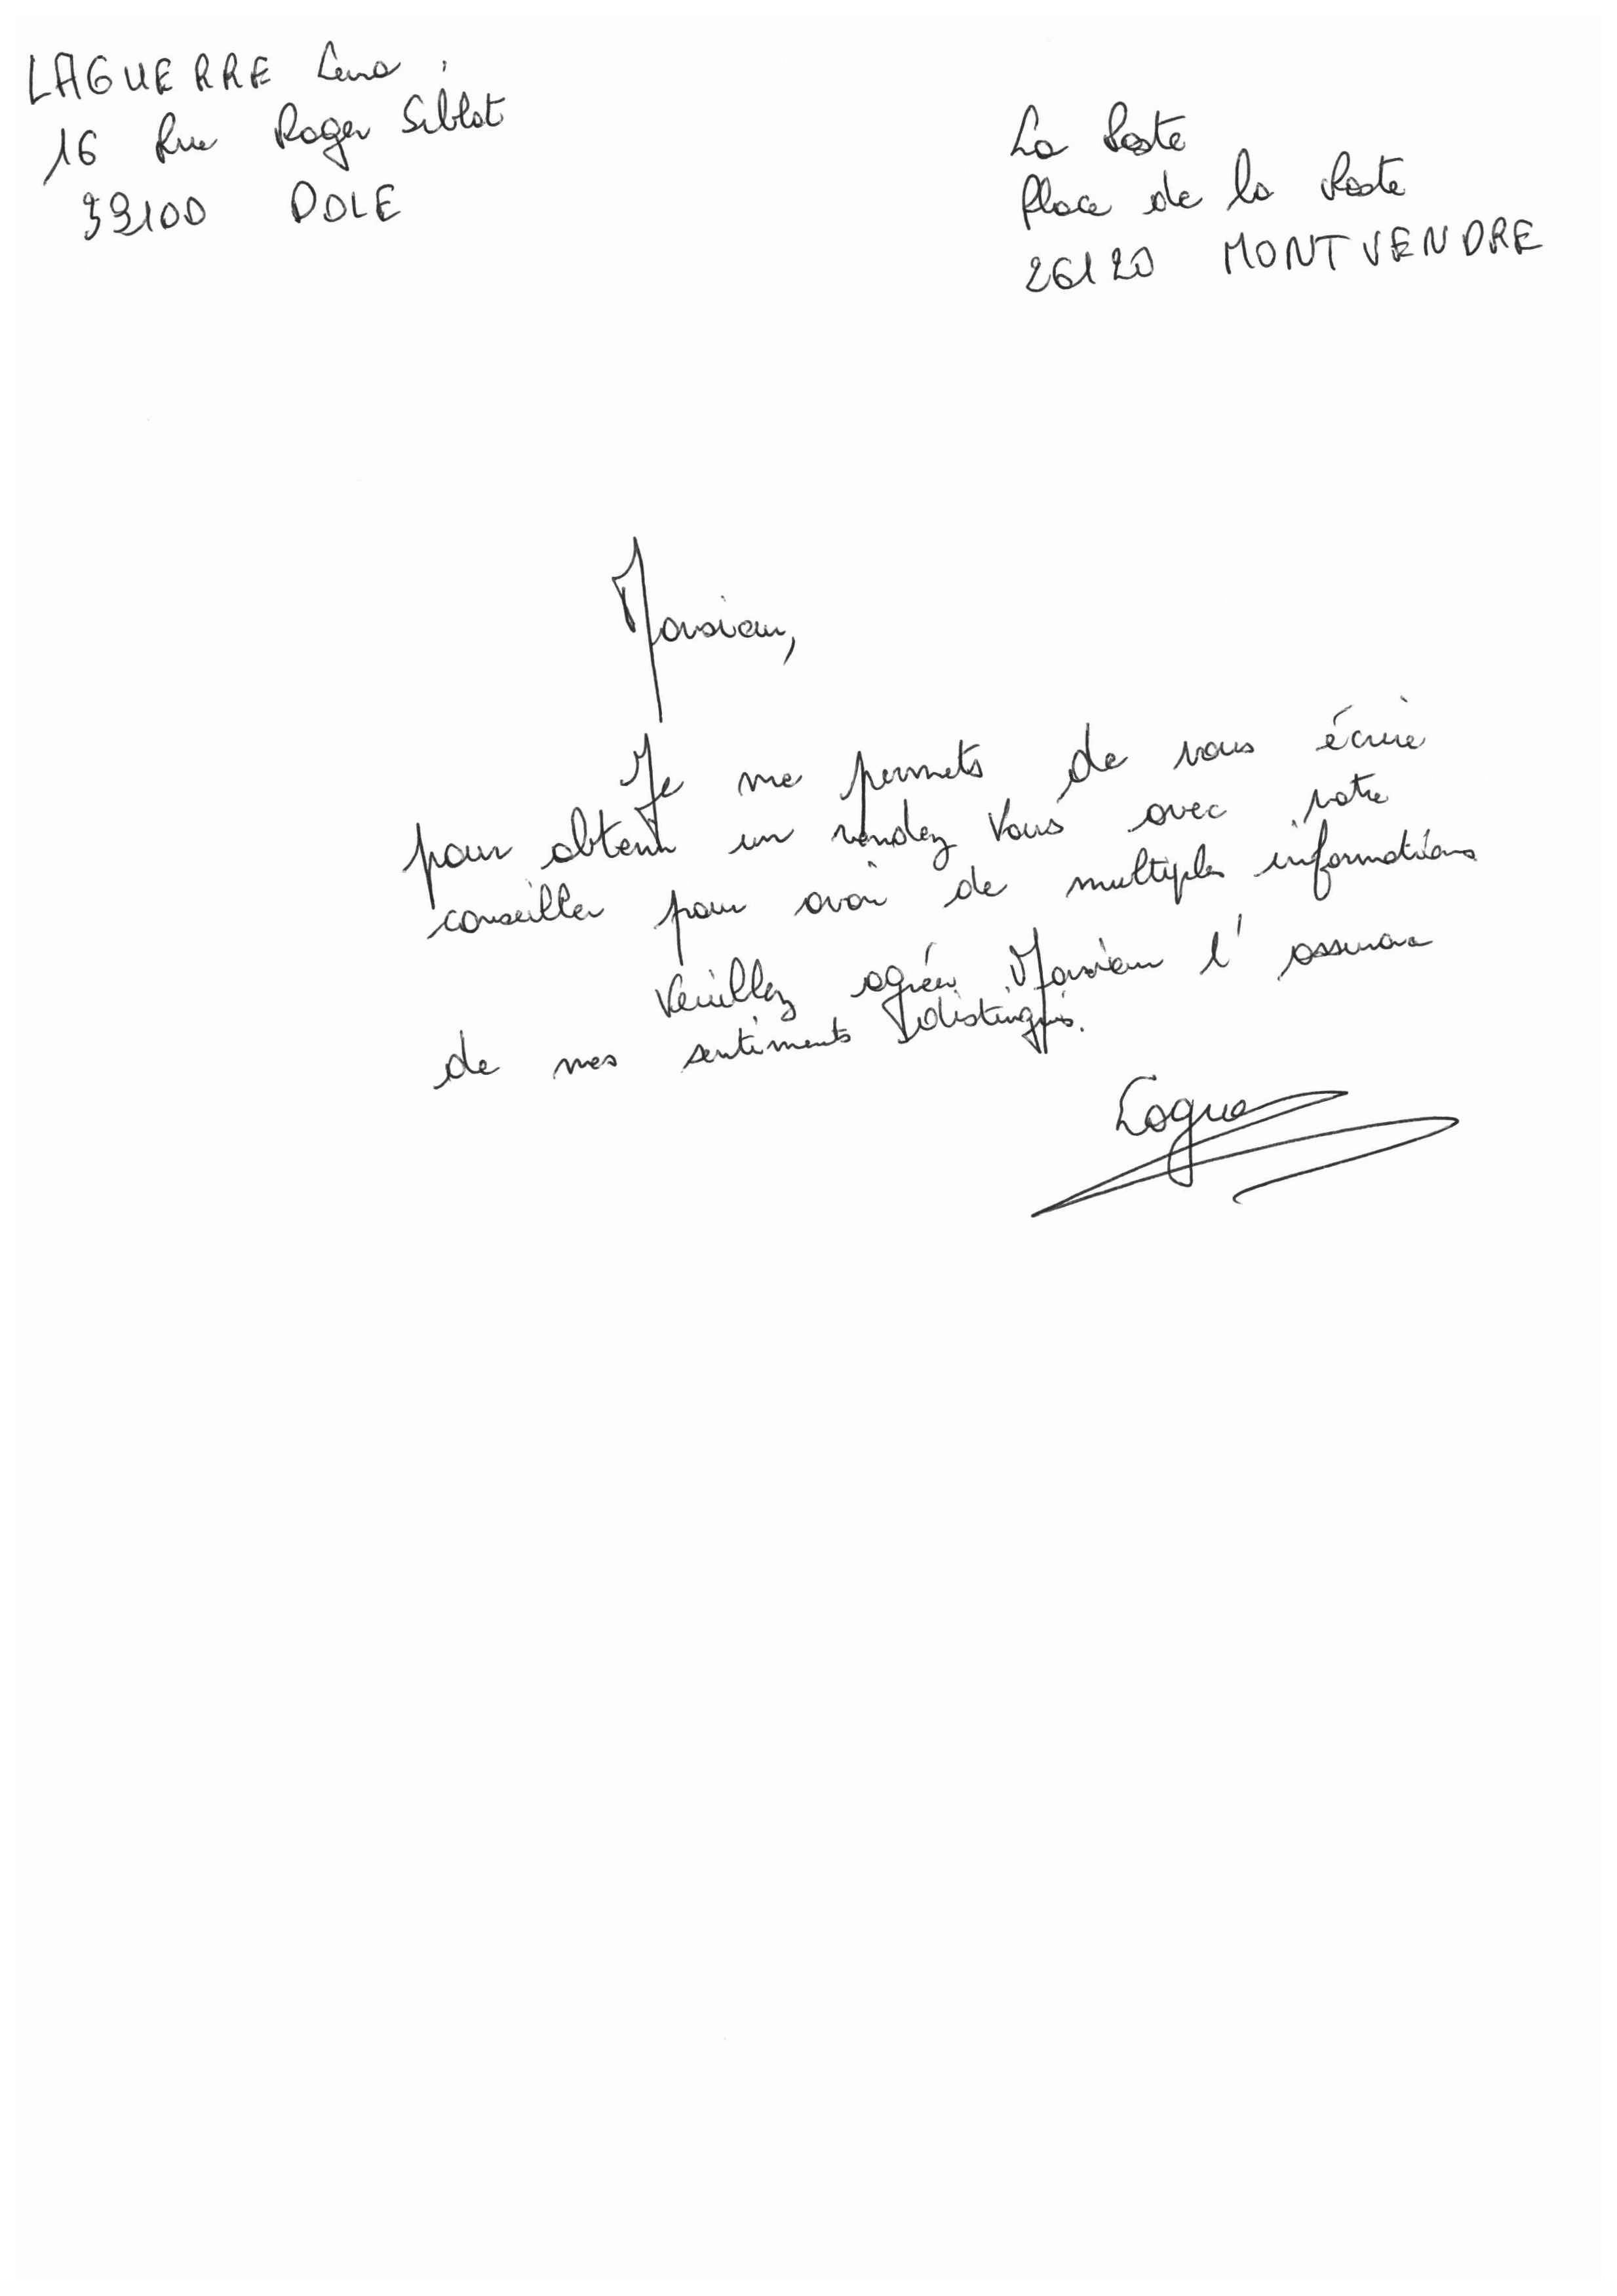 LAGUERRE Lena
16 Rue Roger Siblot
39100 DOLE
La Poste
Place de la Poste
26120 MONTVENDRE
Monsieur,
Je me permets de vous écrire
pour obtenir un rendez vous avec votre
conseiller pour avoir de multiples informations
Veuillez agréer Monsieur l'assurance
de mes sentiments distingués.
Lague